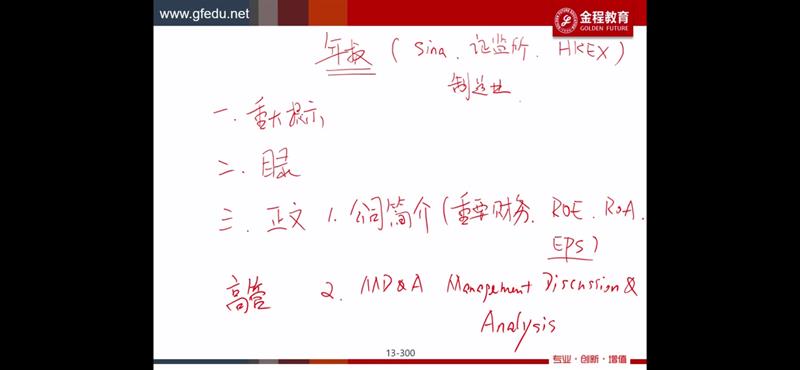 www.gfedu.net
金程教育
GOLDEN FUTURE
年报 (Sina、证监所、HKEX)
制造业
一. 重大提示
二. 目录
三. 正文 1. 公司简介 (重要财务、ROE、ROA、
EPS)
高管 2. MD&A Management Discussion &
Analysis
13-300
专业·创新·增值